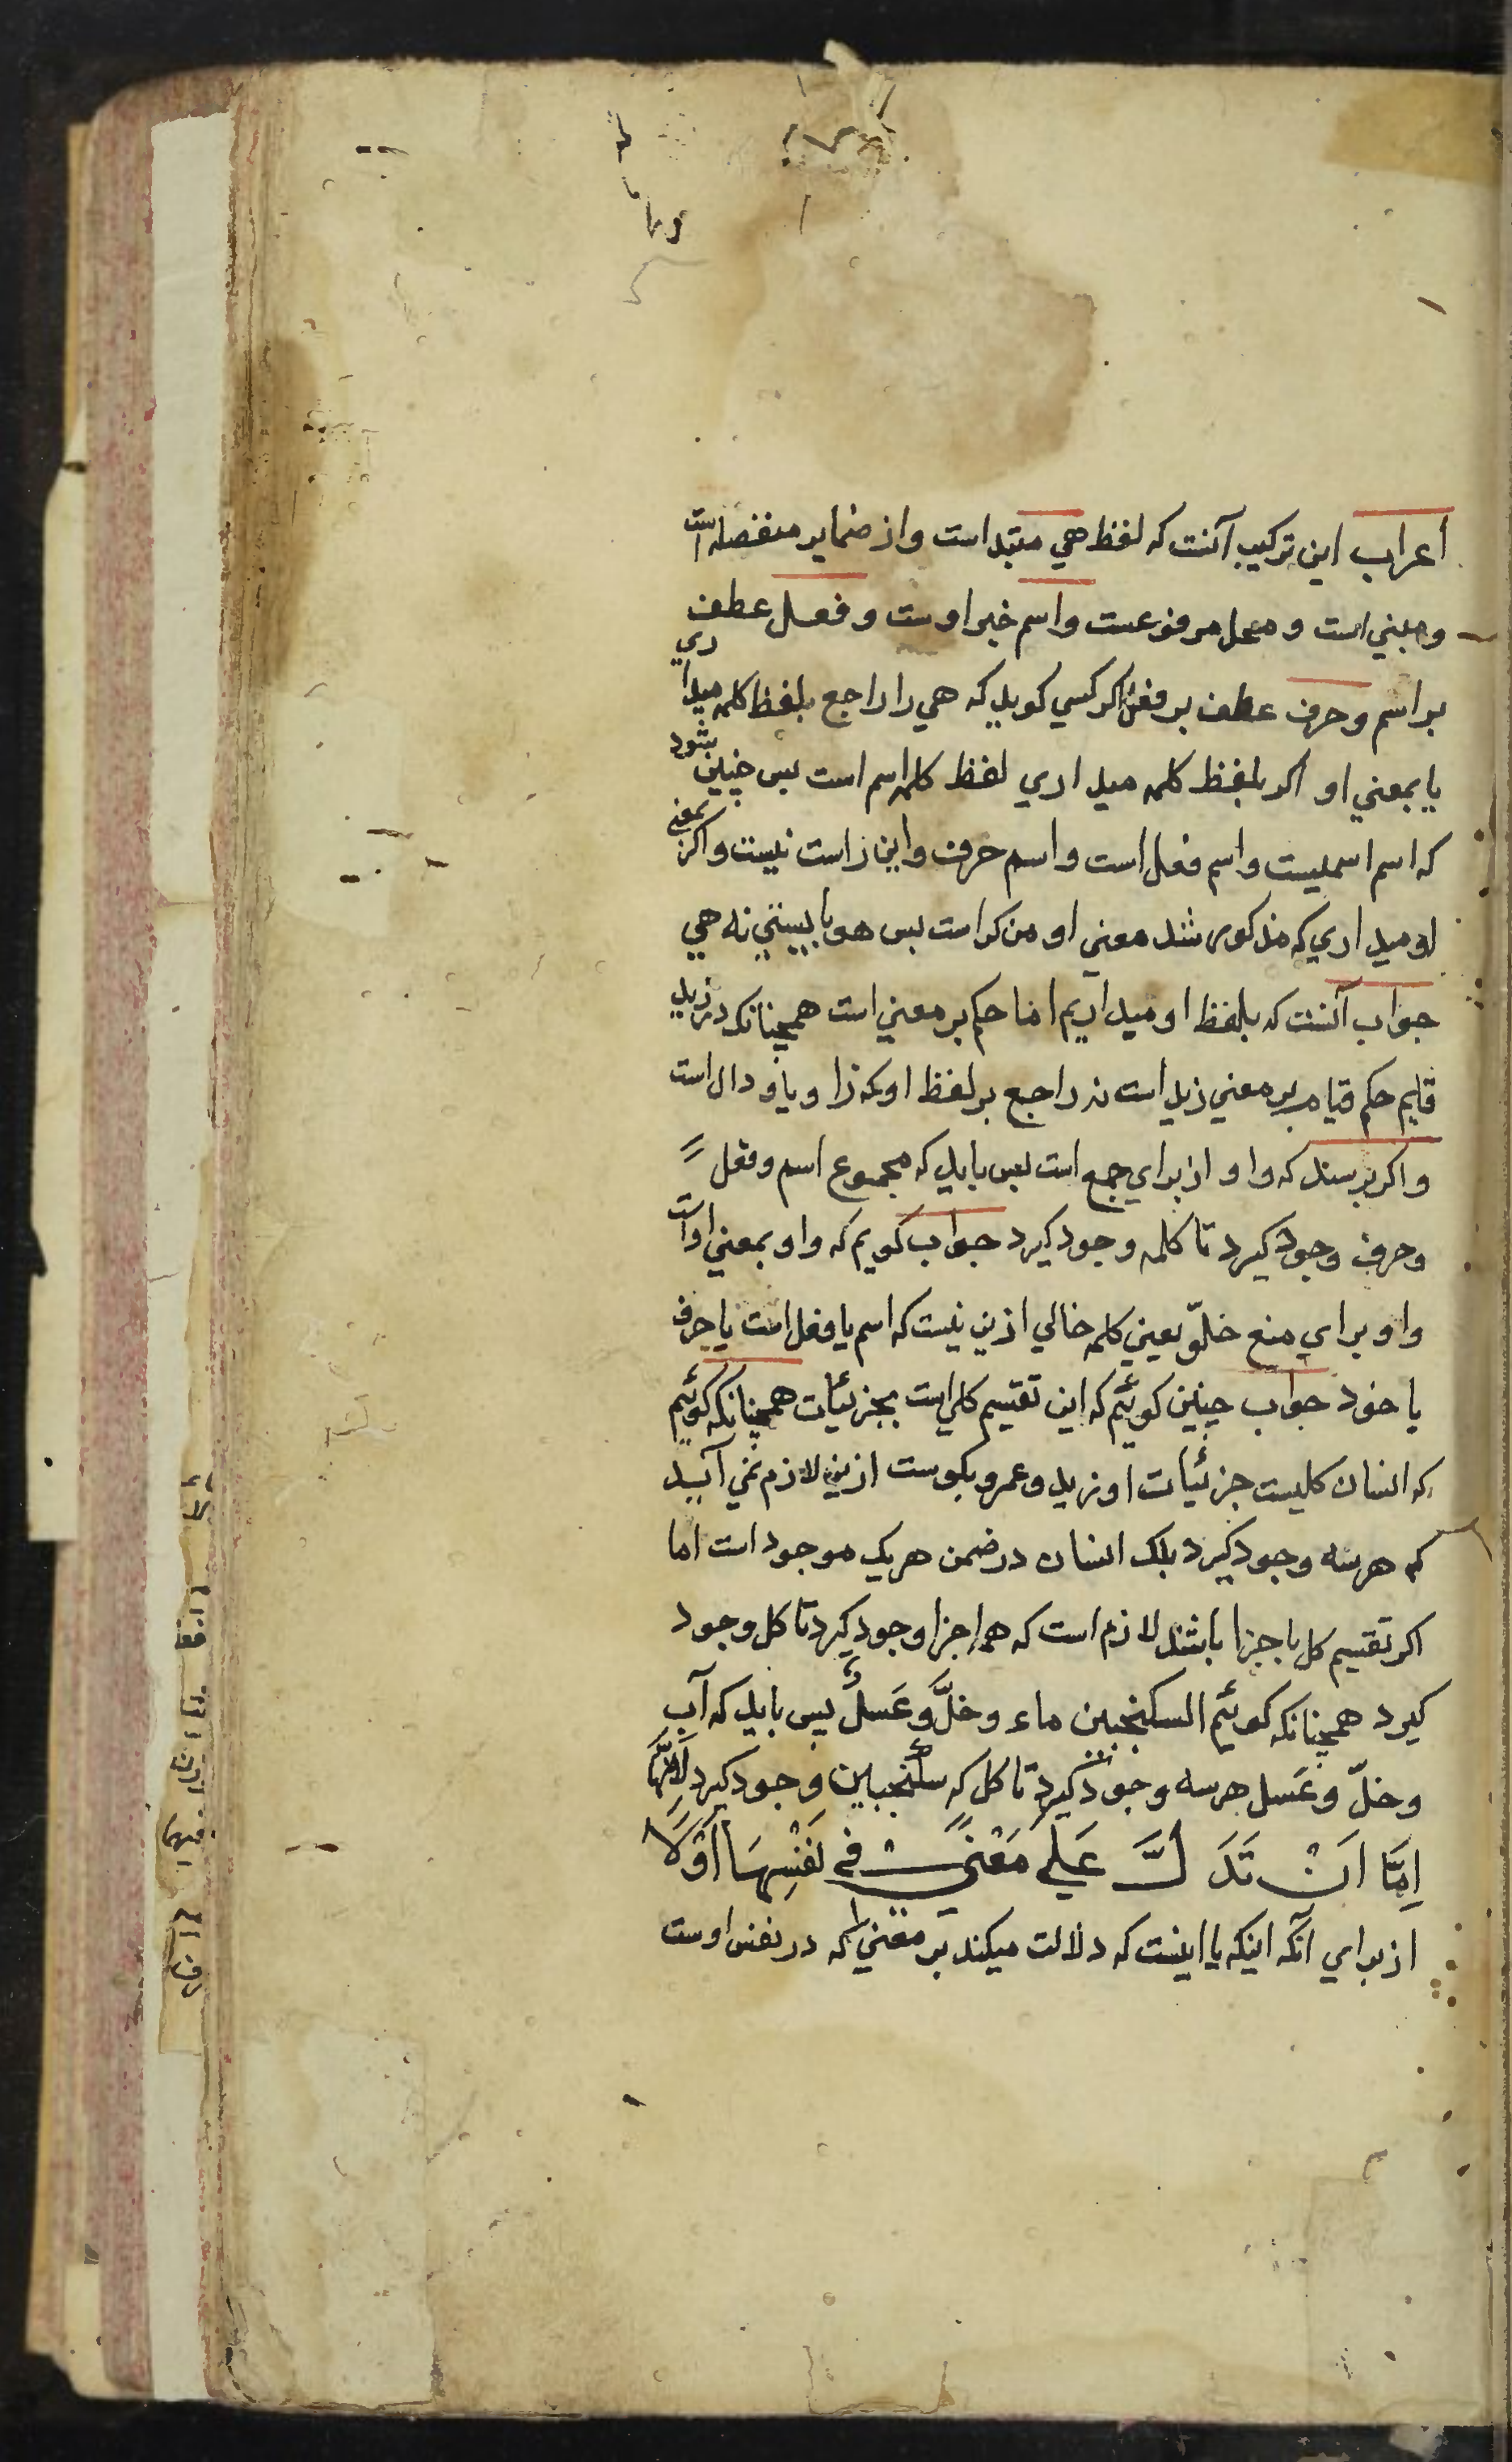 اعراب این ترکیب آنست که لفظ هي مبتداست واز ضمایر منفصله است
ومبني است و محل مرفوعست واسم خبر اوست وفعل عطف
بر اسم وحرف عطف بر فعل اکر کسي کوید که هي را راجع بلفظ کلمه میداري
یا بمعني او اکر بلفظ کلمه میداري لفظ کلمه اسم است پس چنین بشود
که اسم اسمیست واسم فعل است واسم حرف واین راست نیست واکر بمعني
او میداري که مذکور شد معني او مذکر است پس هو بایستي نه هي
جواب آنست که بلفظ او میداریم اما حکم بر معني است همچنانکه در زید
قایم حکم قیام بر معني زید است نه راجع بر لفظ او که زا ویا و دال است
واکر پرسند که واو از براي جمع است پس باید که مجموع اسم وفعل
وحرف وجود کیرد تا کلمه وجود کیرد جواب کویم که واو بمعني او است
واو براي منع خلوّ یعني کلمه خالي ازین نیست که اسم یا فعل است یا حرف
یا خود جواب چنین کوئیم که این تقسیم کلي است بجزئیات همچنانکه کوئیم
که انسان کلیست جزئیات او زید وعمرو بکرست ازین لازم نمي آید
که هر سه وجود کیرد بلک انسان در ضمن هر یک موجود است اما
اکر تقسیم کل باجزا باشد لازم است که همه اجزا وجود کیرد تا کل وجود
کیرد همچنانکه کوئیم السکنجبین ماء وخلٌّ وعَسلٌ پس باید که آب
وخلّ وعَسل هر سه وجود کیرد تا کل که سکنجبین وجود کیرد لِاَنَّهَا
اِمَّا اَنْ تَدَلَّ عَلَي مَعْنًي فِي نَفْسِهَا اَوْلَا
از براي آنکه اینکه یا اینست که دلالت میکند بر معني که در نفس اوست